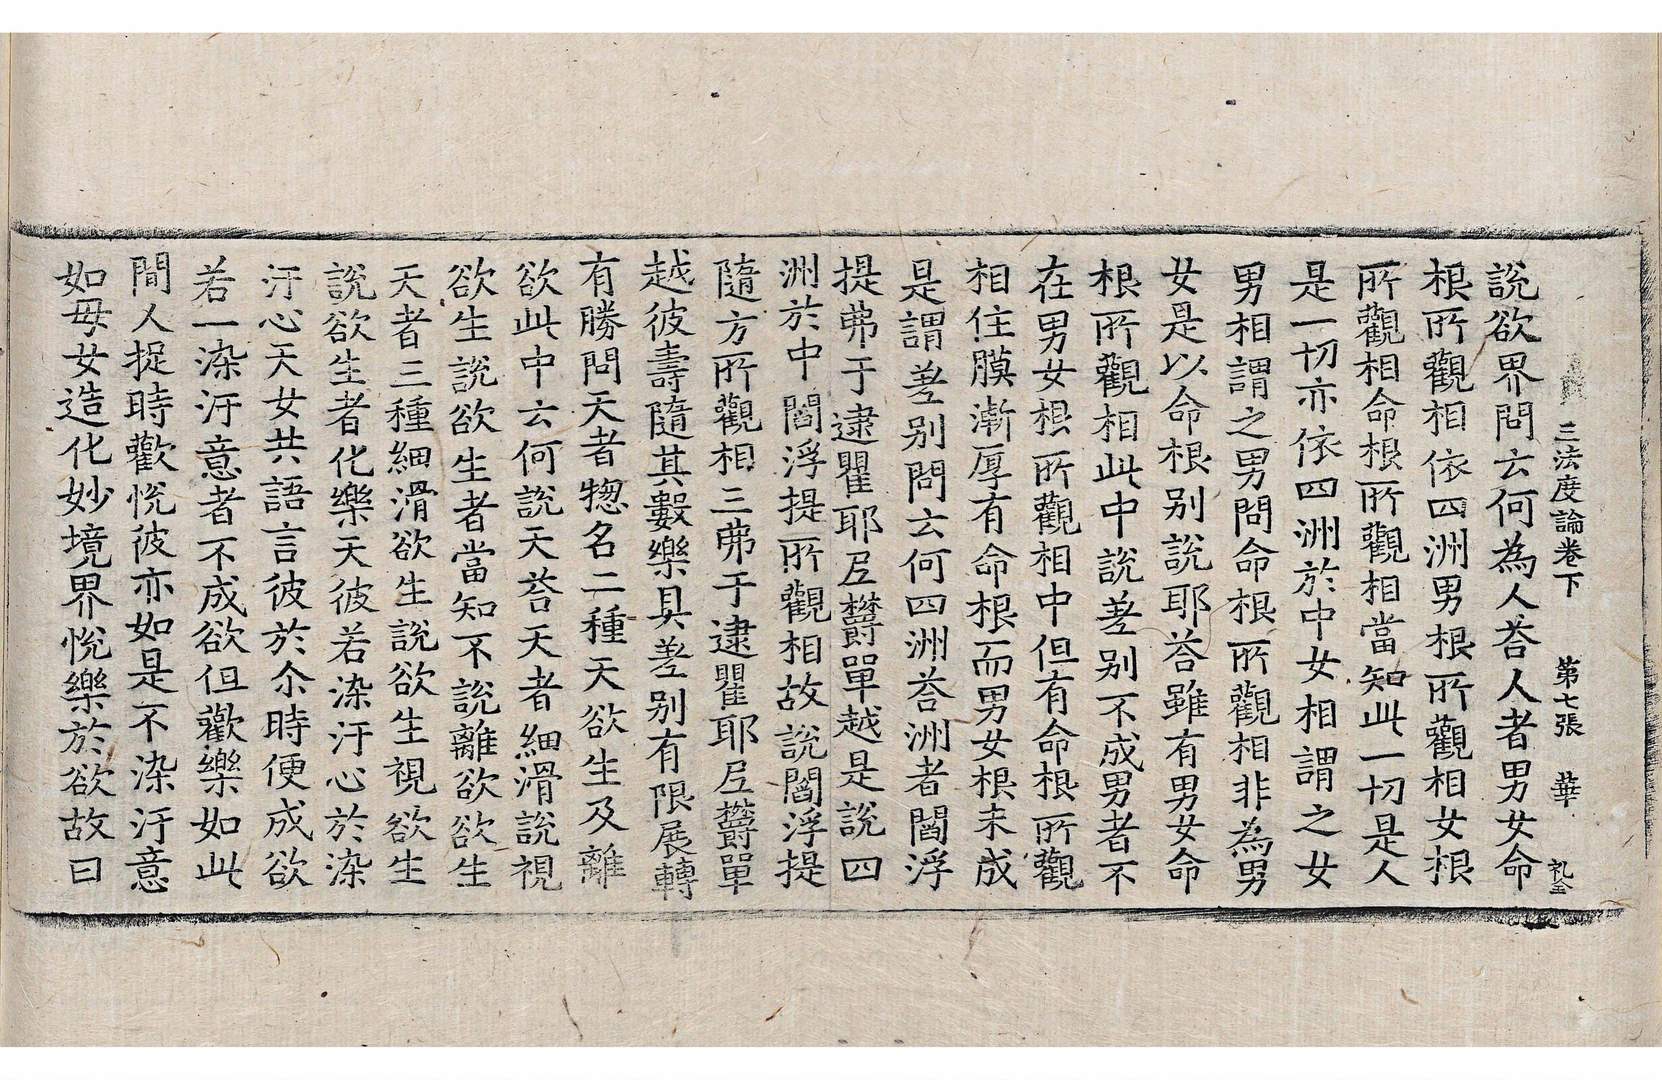 三法度論卷下 第七張 華 礼全
說欲界問云何為人荅人者男女命
根所觀相依四洲男根所觀相女根
所觀相命根所觀相當知此一切是人
是一切亦依四洲於中女相謂之女
男相謂之男問命根所觀相非為男
女是以命根别說耶荅雖有男女命
根所觀相此中說差别不成男者不
在男女根所觀相中但有命根所觀
相住膜漸厚有命根而男女根未成
是謂差别問云何四洲荅洲者閻浮
提弗于逮瞿耶尼欝單越是說四
洲於中閻浮提所觀相故說閻浮提
隨方所觀相三弗于逮瞿耶尼欝單
越彼壽隨其數樂具差别有限展轉
有勝問天者惣名二種天欲生及離
欲此中云何說天荅天者細滑說視
欲生說欲生者當知不說離欲欲生
天者三種細滑欲生說欲生視欲生
說欲生者化樂天彼若染汙心於染
汙心天女共語言彼於尒時便成欲
若一染汙意者不成欲但歡樂如此
間人捉時歡悅彼亦如是不染汙意
如母女造化妙境界悅樂於欲故曰